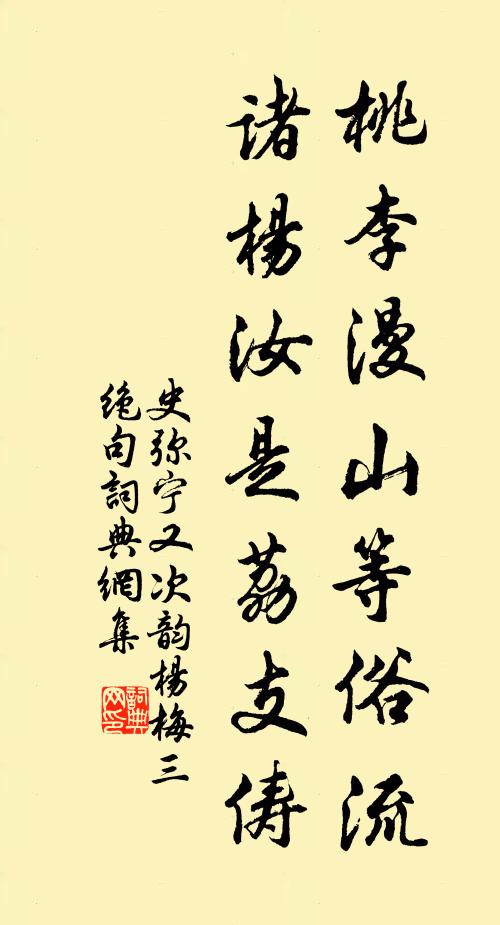 桃李漫山等俗流
诸杨汝是荔支俦
史弥宁又次韵杨梅三
绝句詞典網集
詞典网印